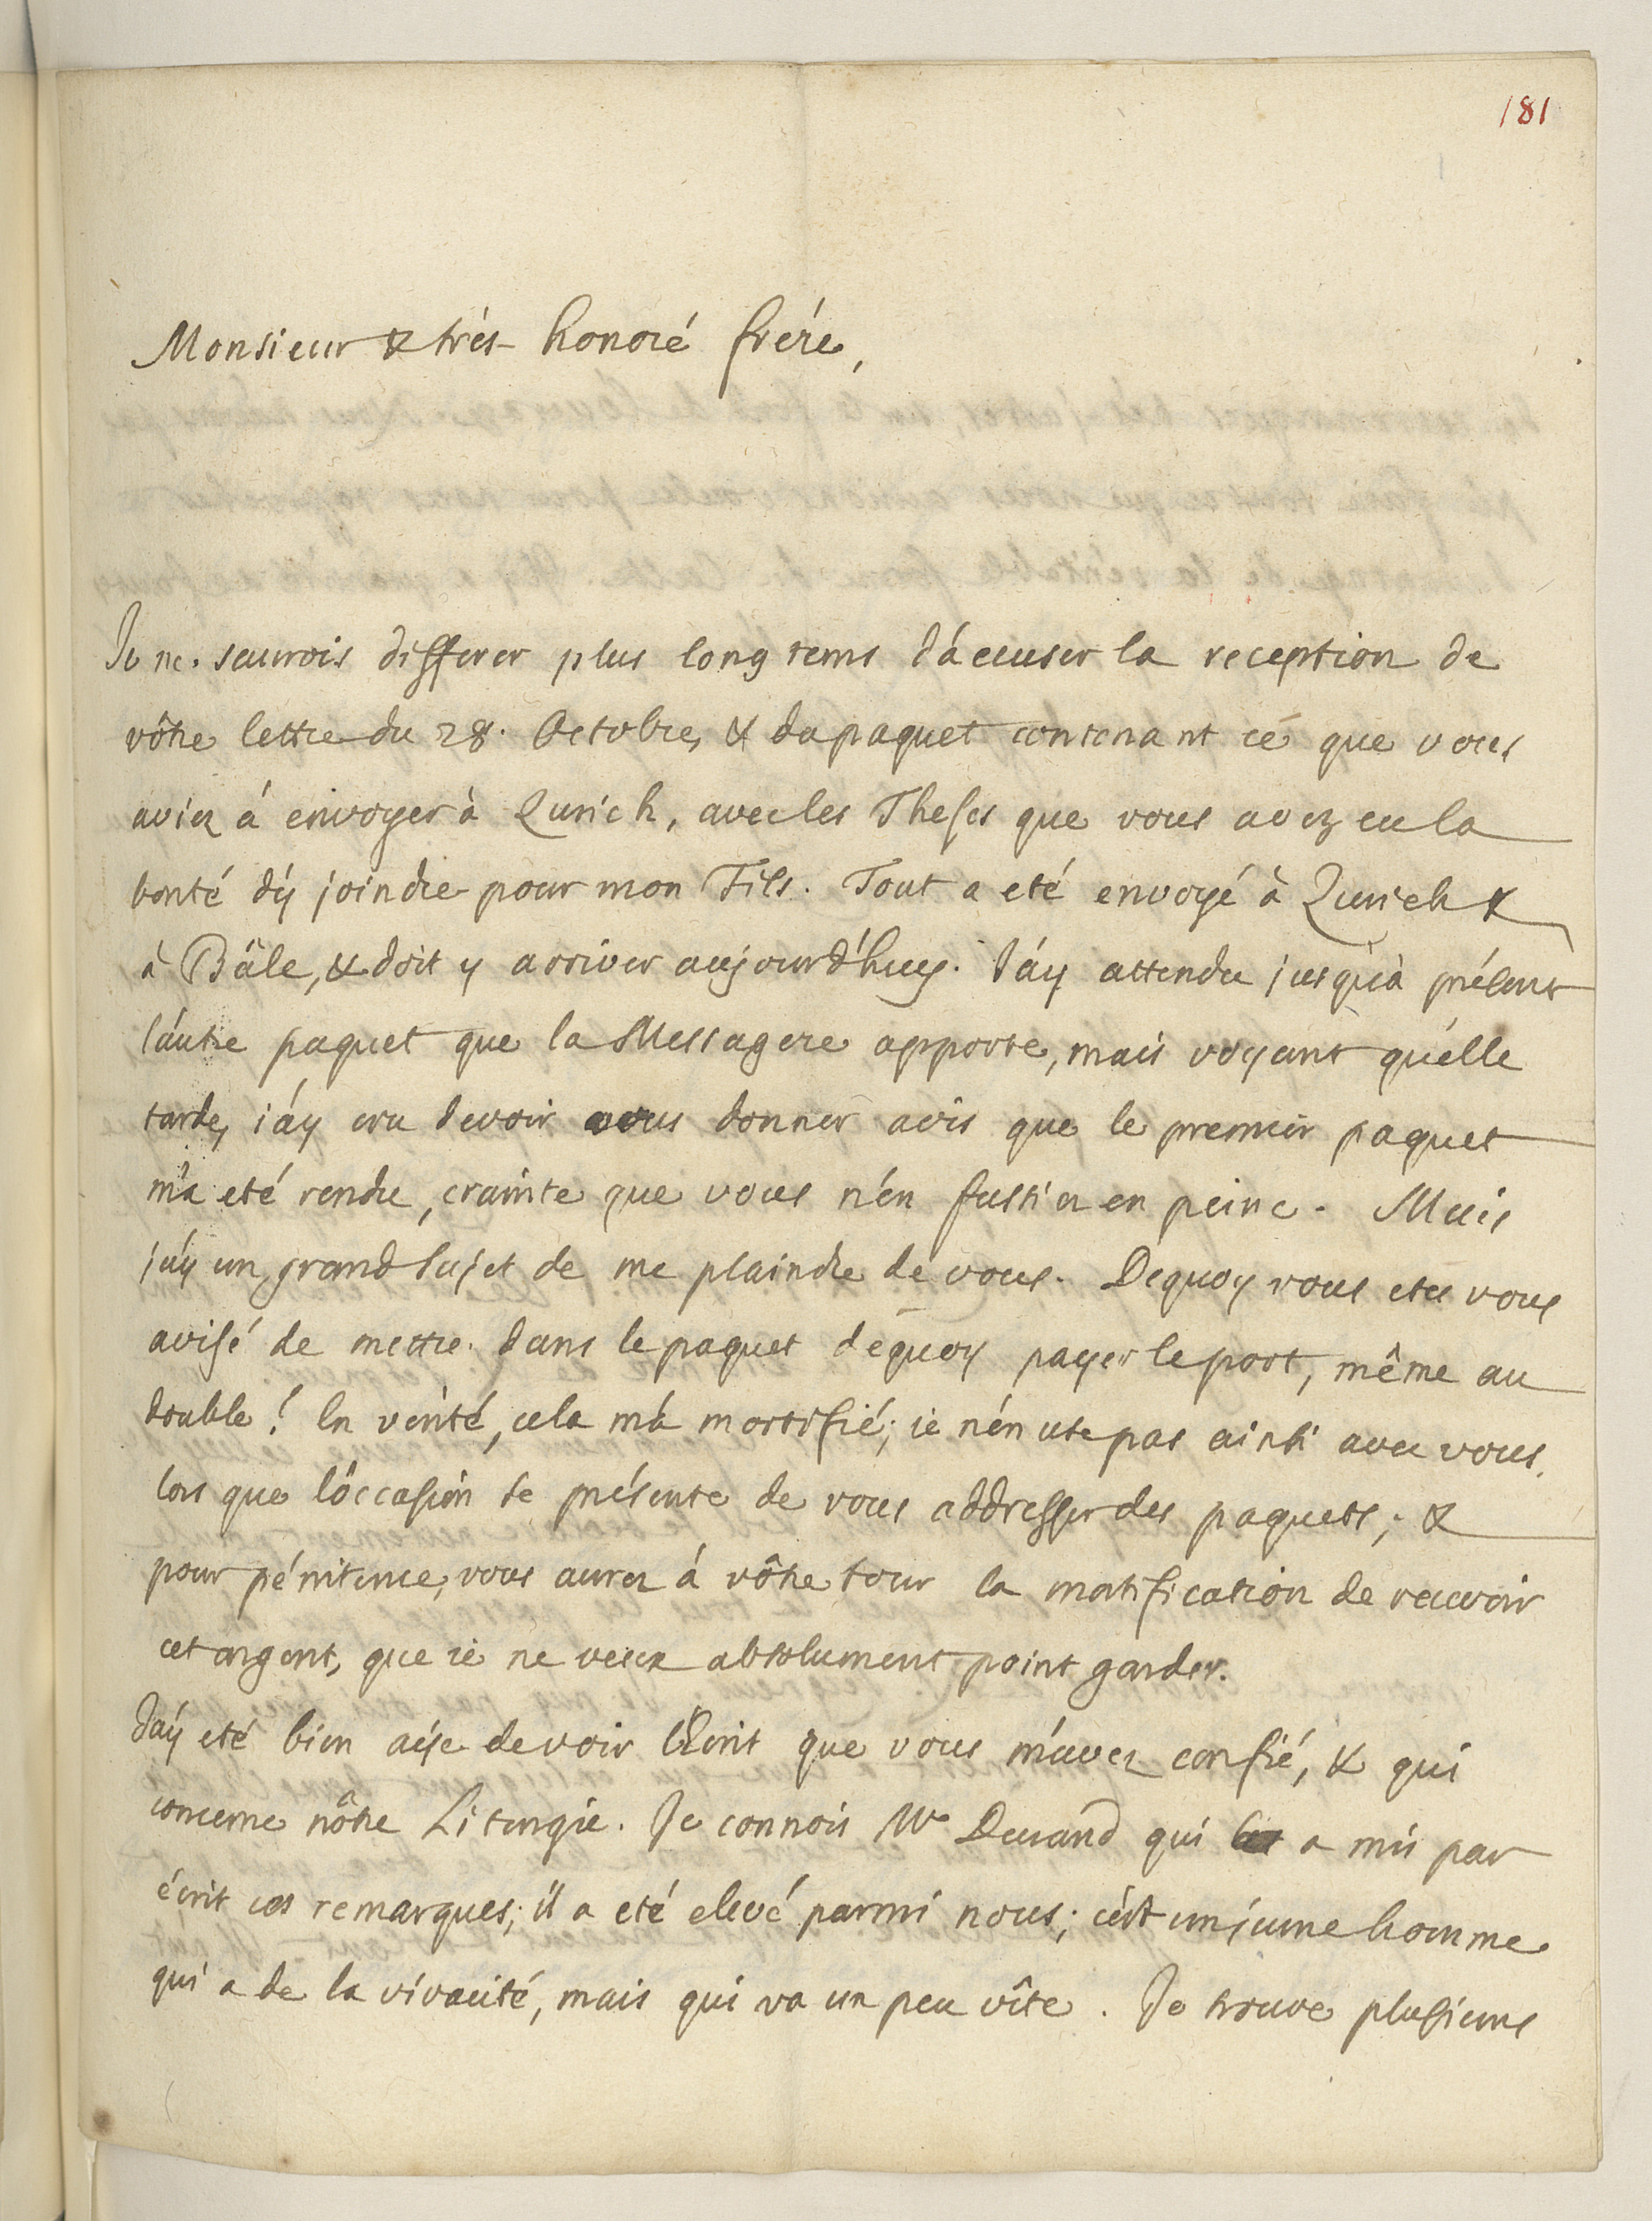 181
Monsieur & trés-honoré frére,
Je ne saurois differer plus long tems d'accuser la reception de
vôtre lettre du 28. Octobre, & du paquet contenant ce que vous
aviez à envoyer à Zurich, avec les Theses que vous avez eu la
bonté d'y joindre pour mon Fils. Tout a eté envoyé à Zurich &
à Bâle, & doit y arriver aujourd'huy. J'ay attendu jusqu'à présent
l'autre paquet que la Messagere apporte, mais voyant qu'elle
tarde, j'ay cru devoir vous donner avis que le premier paquet
m'a eté rendu, crainte que vous n'en fussiez en peine. Mais
j'ay un grand sujet de me plaindre de vous. Dequoy vous etes vous
avisé de mettre dans le paquet dequoy payer le port, même au
double! En vérité, cela m'a mortifié; je n'en use pas ainsi avec vous,
lors que l'occasion se présente de vous addresser des paquets; &
pour pénitence, vous aurez à vôtre tour la mortification de recevoir
cet argent, que je ne veux absolument point garder.
J'ay eté bien aise de voir l'Ecrit que vous m'avez confié, & qui
concerne nôtre Liturgie. Je connois Mr Durand qui a mis par
écrit ces remarques; il a eté elevé parmi nous; c'est un jeune homme
qui a de la vivacité, mais qui va un peu vîte. Je trouve plusieurs